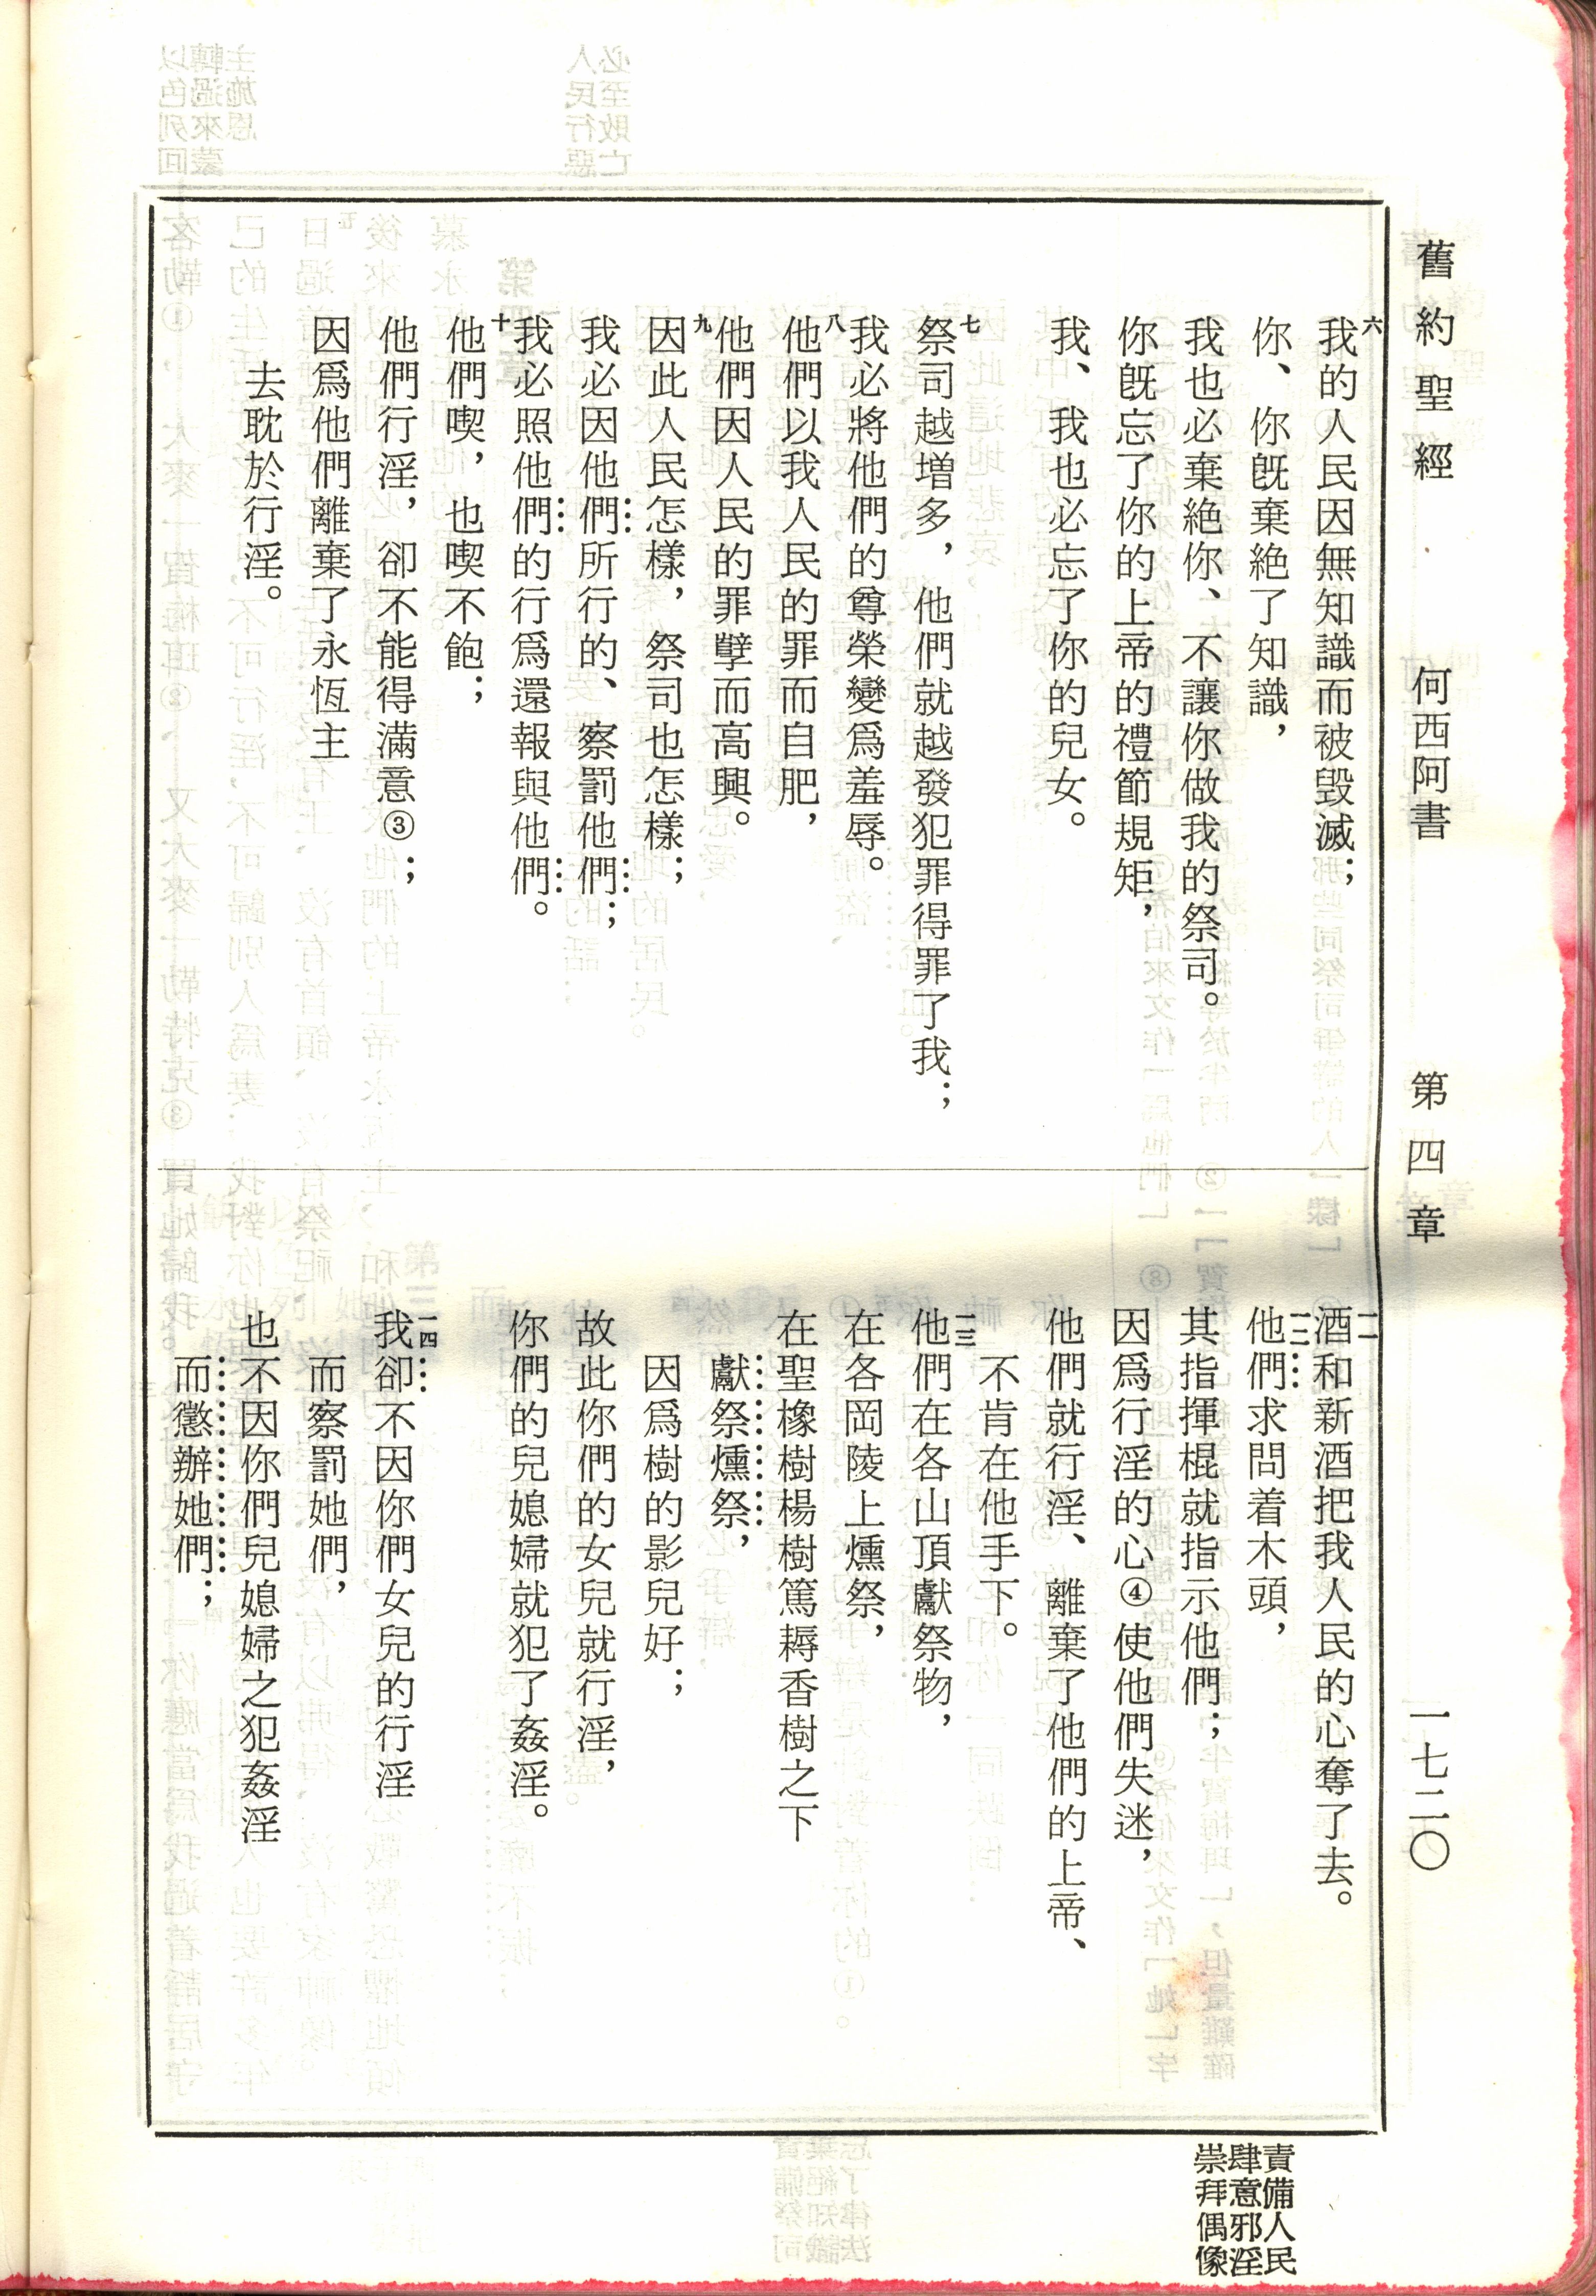 舊約聖經 何西阿書 第四章 一七二〇
六我的人民因無知識而被毀滅；
你、你旣棄絕了知識，
我也必棄絕你、不讓你做我的祭司。
你旣忘了你的上帝的禮節規矩，
我、我也必忘了你的兒女。
七祭司越增多，他們就越發犯罪得罪了我；
我必將他們的尊榮變爲羞辱。
八他們以我人民的罪而自肥，
他們因人民的罪孽而高興。
九因此人民怎樣，祭司也怎樣；
我必因他們所行的、察罰他們；
我必照他們的行爲還報與他們。
十他們喫，也喫不飽；
他們行淫，卻不能得滿意③；
因爲他們離棄了永恆主
去耽於行淫。
一一酒和新酒把我人民的心奪了去。
一二他們求問着木頭，
其指揮棍就指示他們；
因爲行淫的心④使他們失迷，
他們就行淫、離棄了他們的上帝、
不肯在他手下。
一三他們在各山頂獻祭物，
在各岡陵上燻祭，
在聖橡樹楊樹篤耨香樹之下
獻祭燻祭，
因爲樹的影兒好；
故此你們的女兒就行淫，
你們的兒媳婦就犯了姦淫。
一四我卻不因你們女兒的行淫
而察罰她們，
也不因你們兒媳婦之犯姦淫
而懲辦她們；
責備人民
肆意邪淫
崇拜偶像